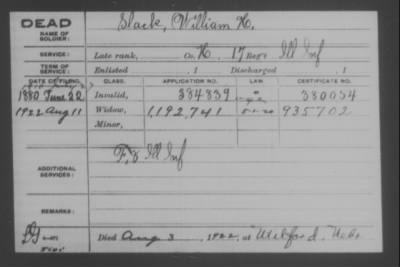 DEAD
NAME OF SOLDIER:
Slack, William H.
SERVICE:
Late rank, Co. H, 17 Reg't Ill Inf
TERM OF SERVICE:
Enlisted , 1 Discharged , 1
DATE OF FILING. CLASS. APPLICATION NO. LAW CERTIFICATE NO.
1880 June 22 Invalid, 384839 380054
1922 Aug 11 Widow, 1,192,741 935702
Minor,
ADDITIONAL SERVICES:
F, 8 Ill Inf
REMARKS:
Died Aug 3, 1922, at Milford, Nebr